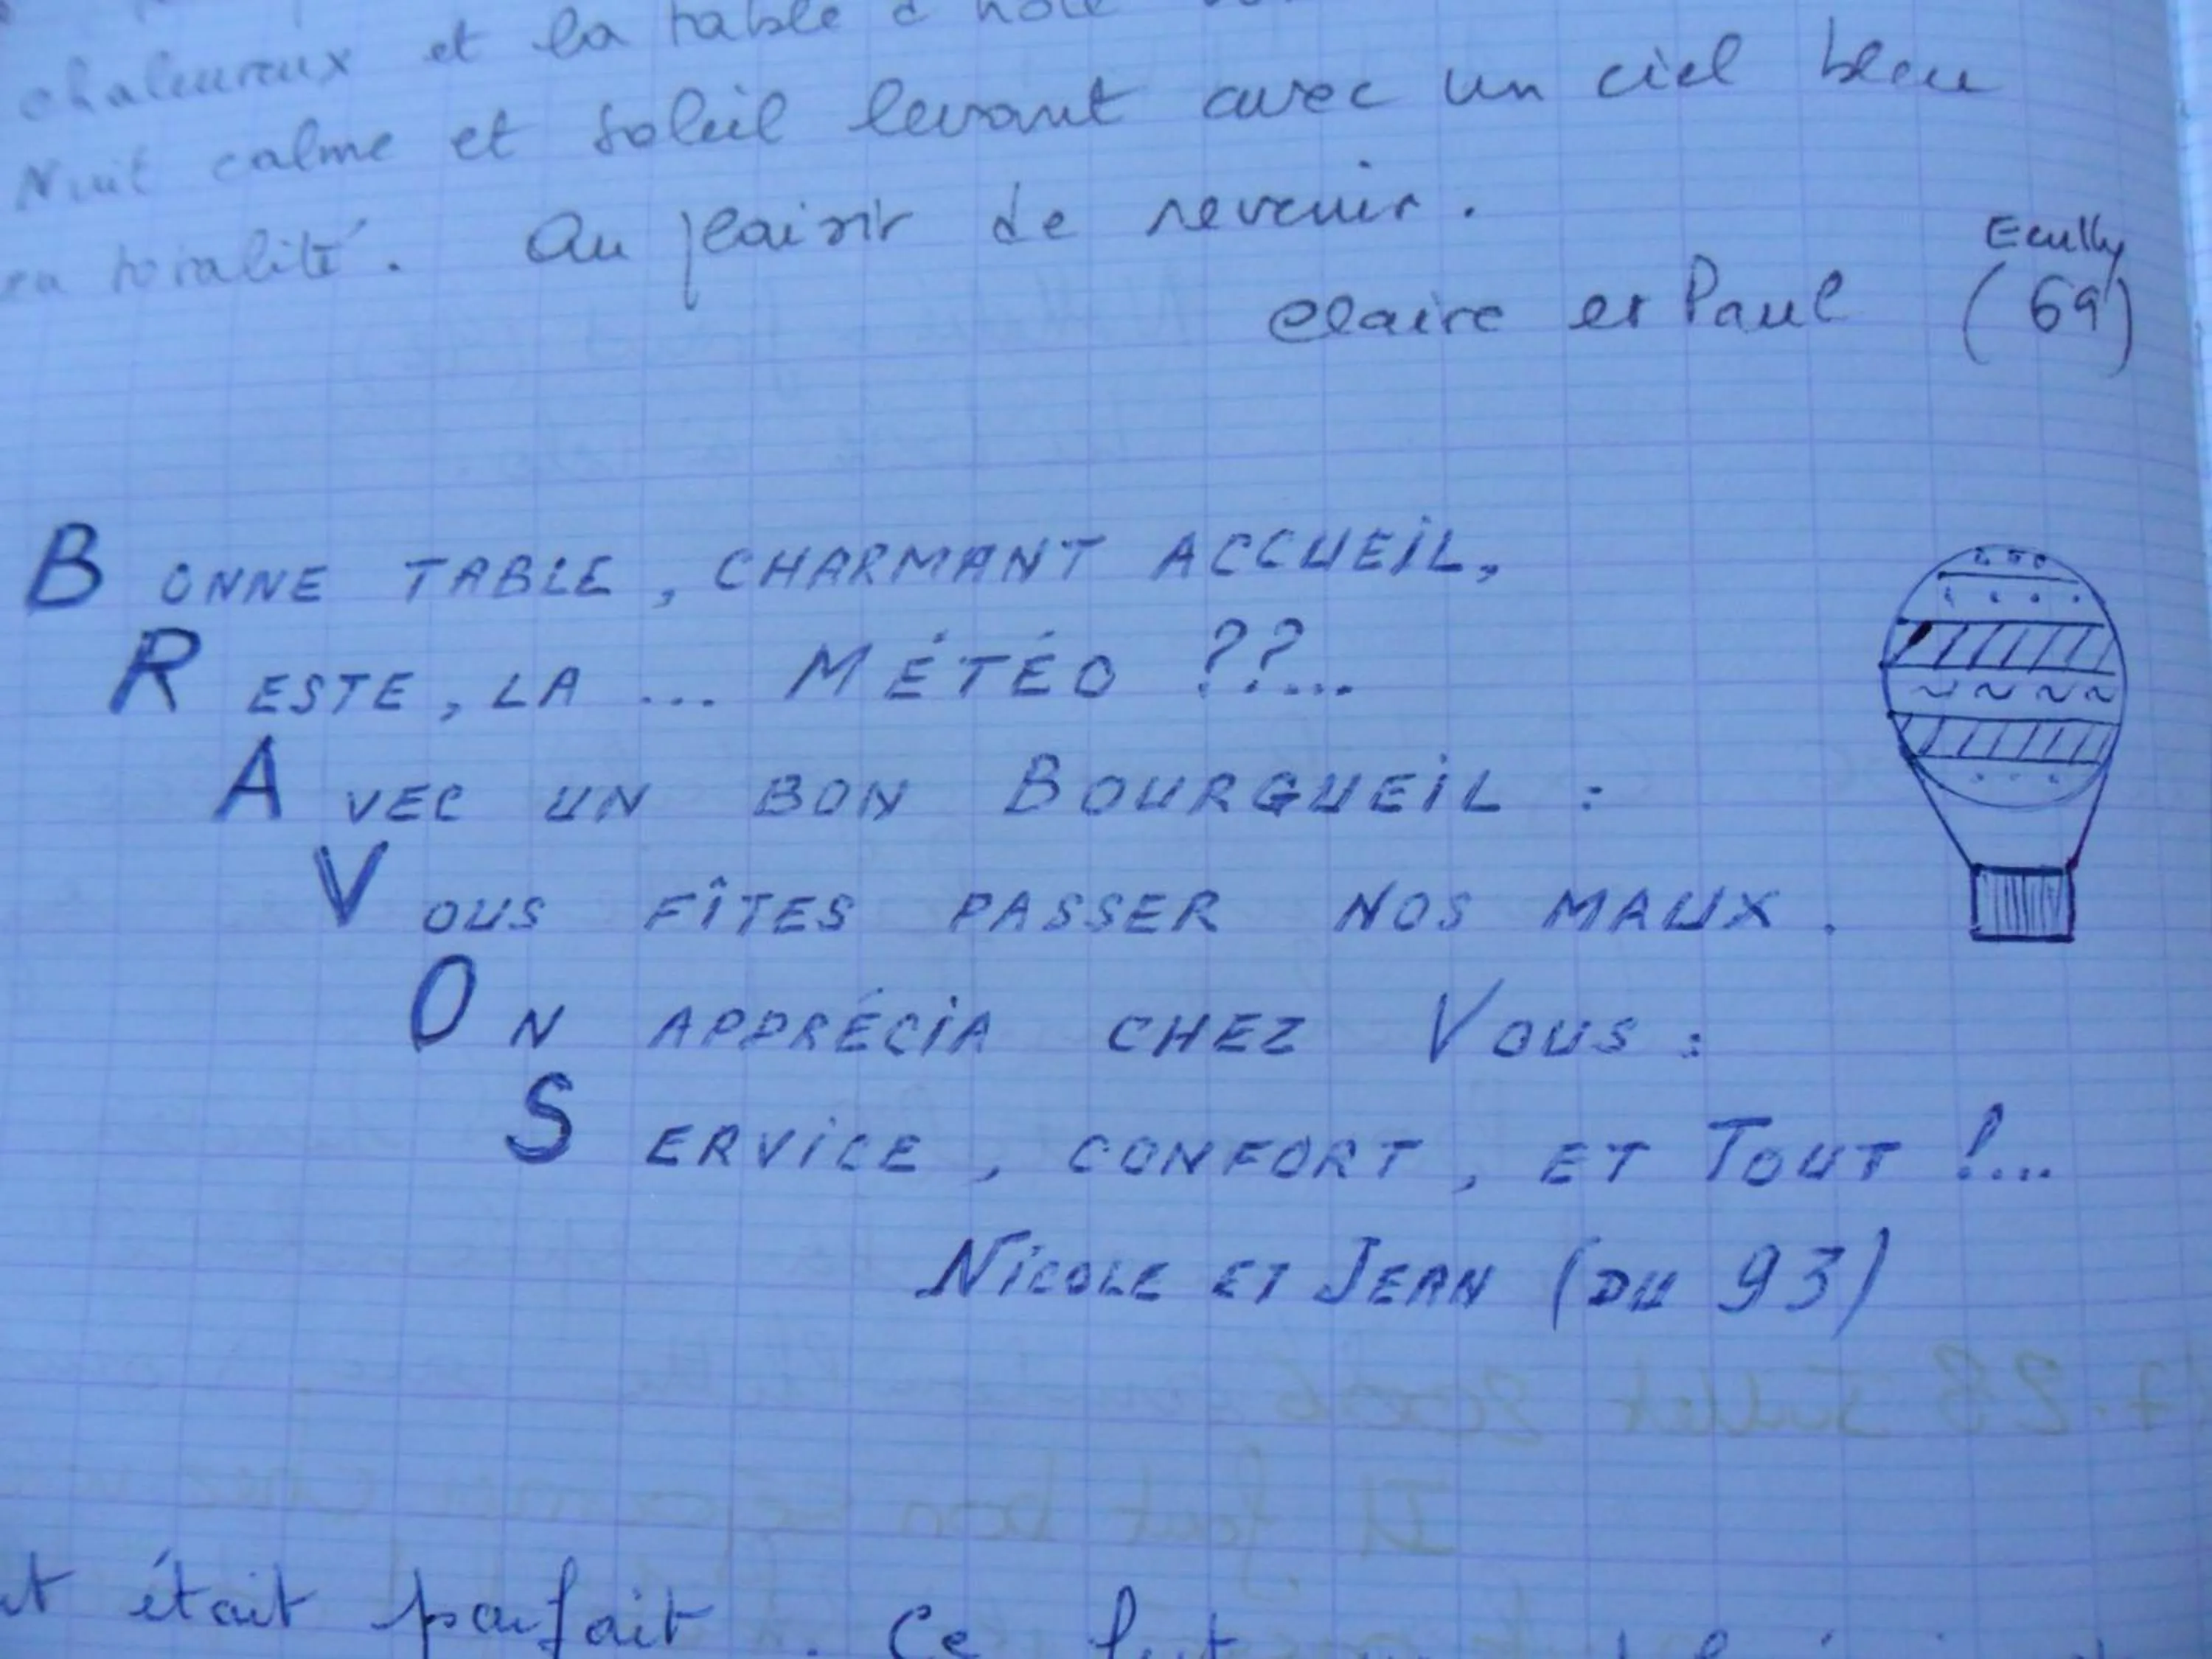 chaleureux et la table d'hôte
Nuit calme et soleil levant avec un ciel bleu
en totalité. Au plaisir de revenir.
Ecully
Claire et Paul (69)
BONNE TABLE, CHARMANT ACCUEIL,
RESTE, LA ... MÉTÉO ??...
AVEC UN BON BOURGUEIL :
VOUS FÎTES PASSER NOS MAUX.
ON APPRÉCIA CHEZ VOUS :
SERVICE, CONFORT, ET TOUT !...
NICOLE ET JEAN (DU 93)
était parfait. Ce fut